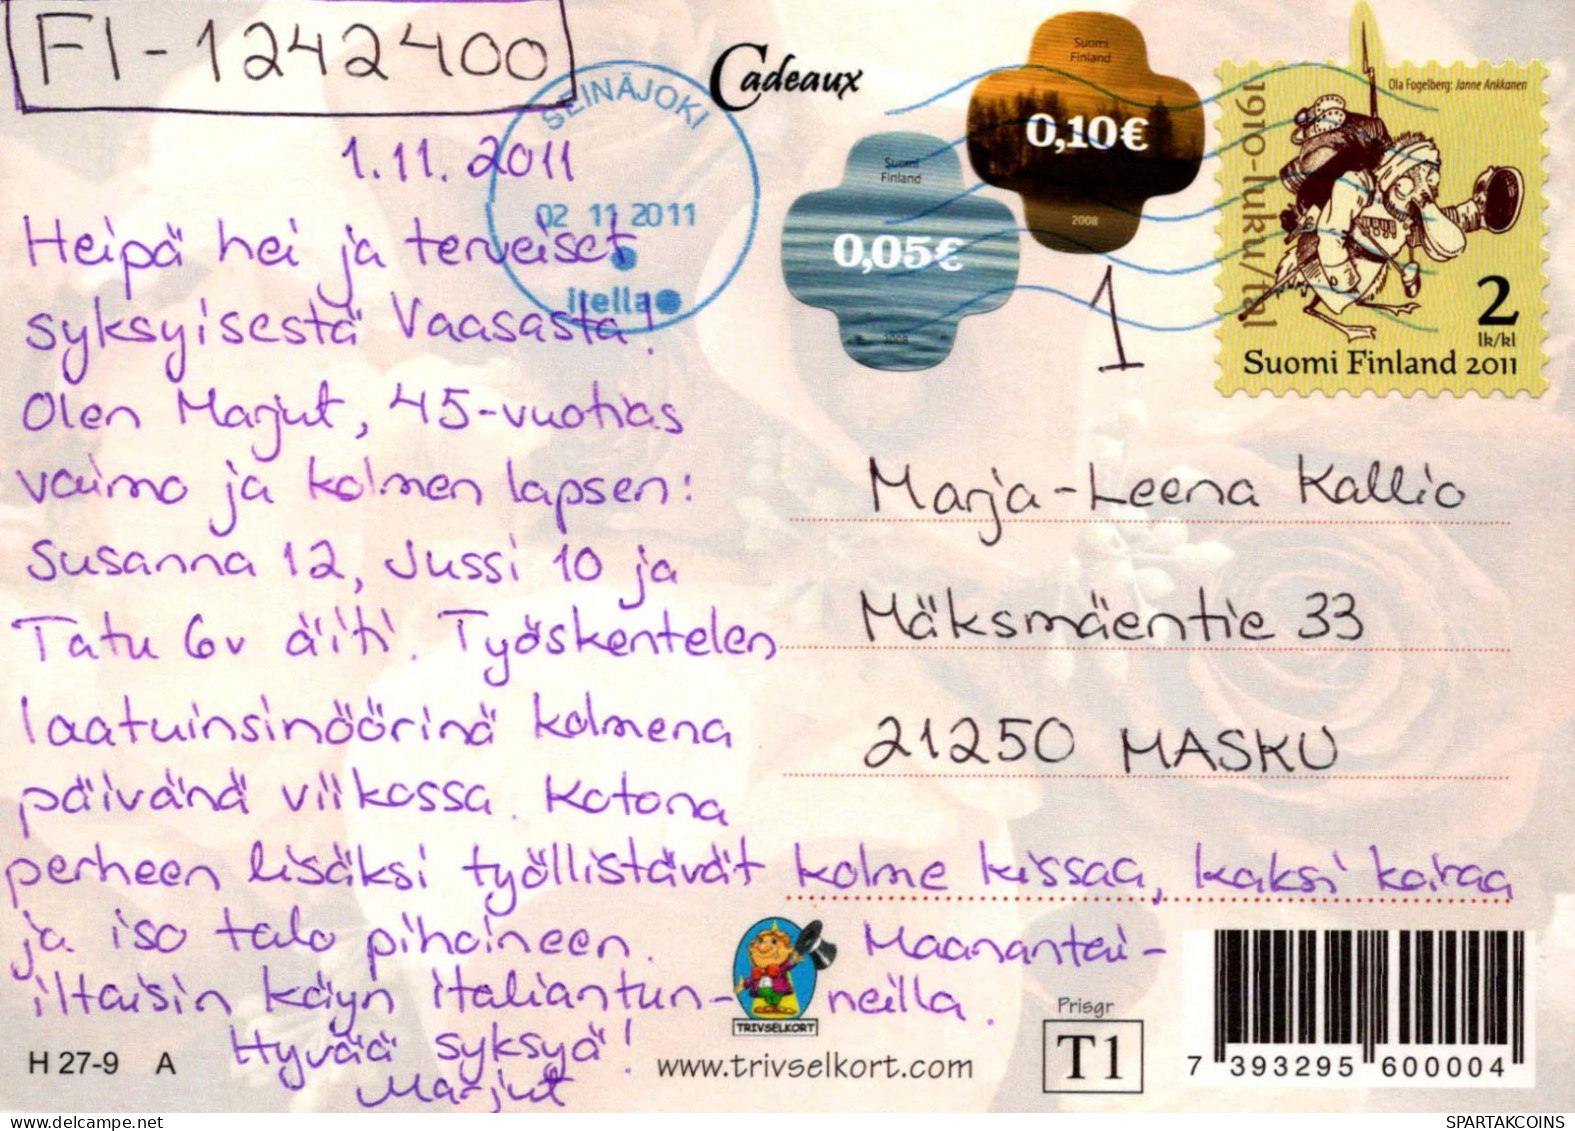 FI-1242400
1.11.2011
SEINÄJOKI
02 11 2011
itella
Cadeaux
Suomi
Finland
0,10€
2008
Suomi
Finland
0,05€
2008
Ola Fogelberg: Janne Ankkanen
1910-luku/tal
2
lk/kl
Suomi Finland 2011
1
Heipä hei ja terveiset
syksyisestä Vaasasta!
Olen Marjut, 45-vuotias
vaimo ja kolmen lapsen:
Susanna 12, Jussi 10 ja
Tatu 6v äiti. Työskentelen
laatuinsinöörinä kolmena
päivänä viikossa. Kotona
perheen lisäksi työllistävät kolme kissaa, kaksi koiraa
ja iso talo pihoineen. Maanantai-
iltaisin käyn italiantun- neilla.
Hyvää syksyä!
Marjut
Marja-Leena Kallio
Mäksmäentie 33
21250 MASKU
TRIVSELKORT
www.trivselkort.com
H 27-9 A
Prisgr
T1
7 393295 600004
SPARTAKCOINS